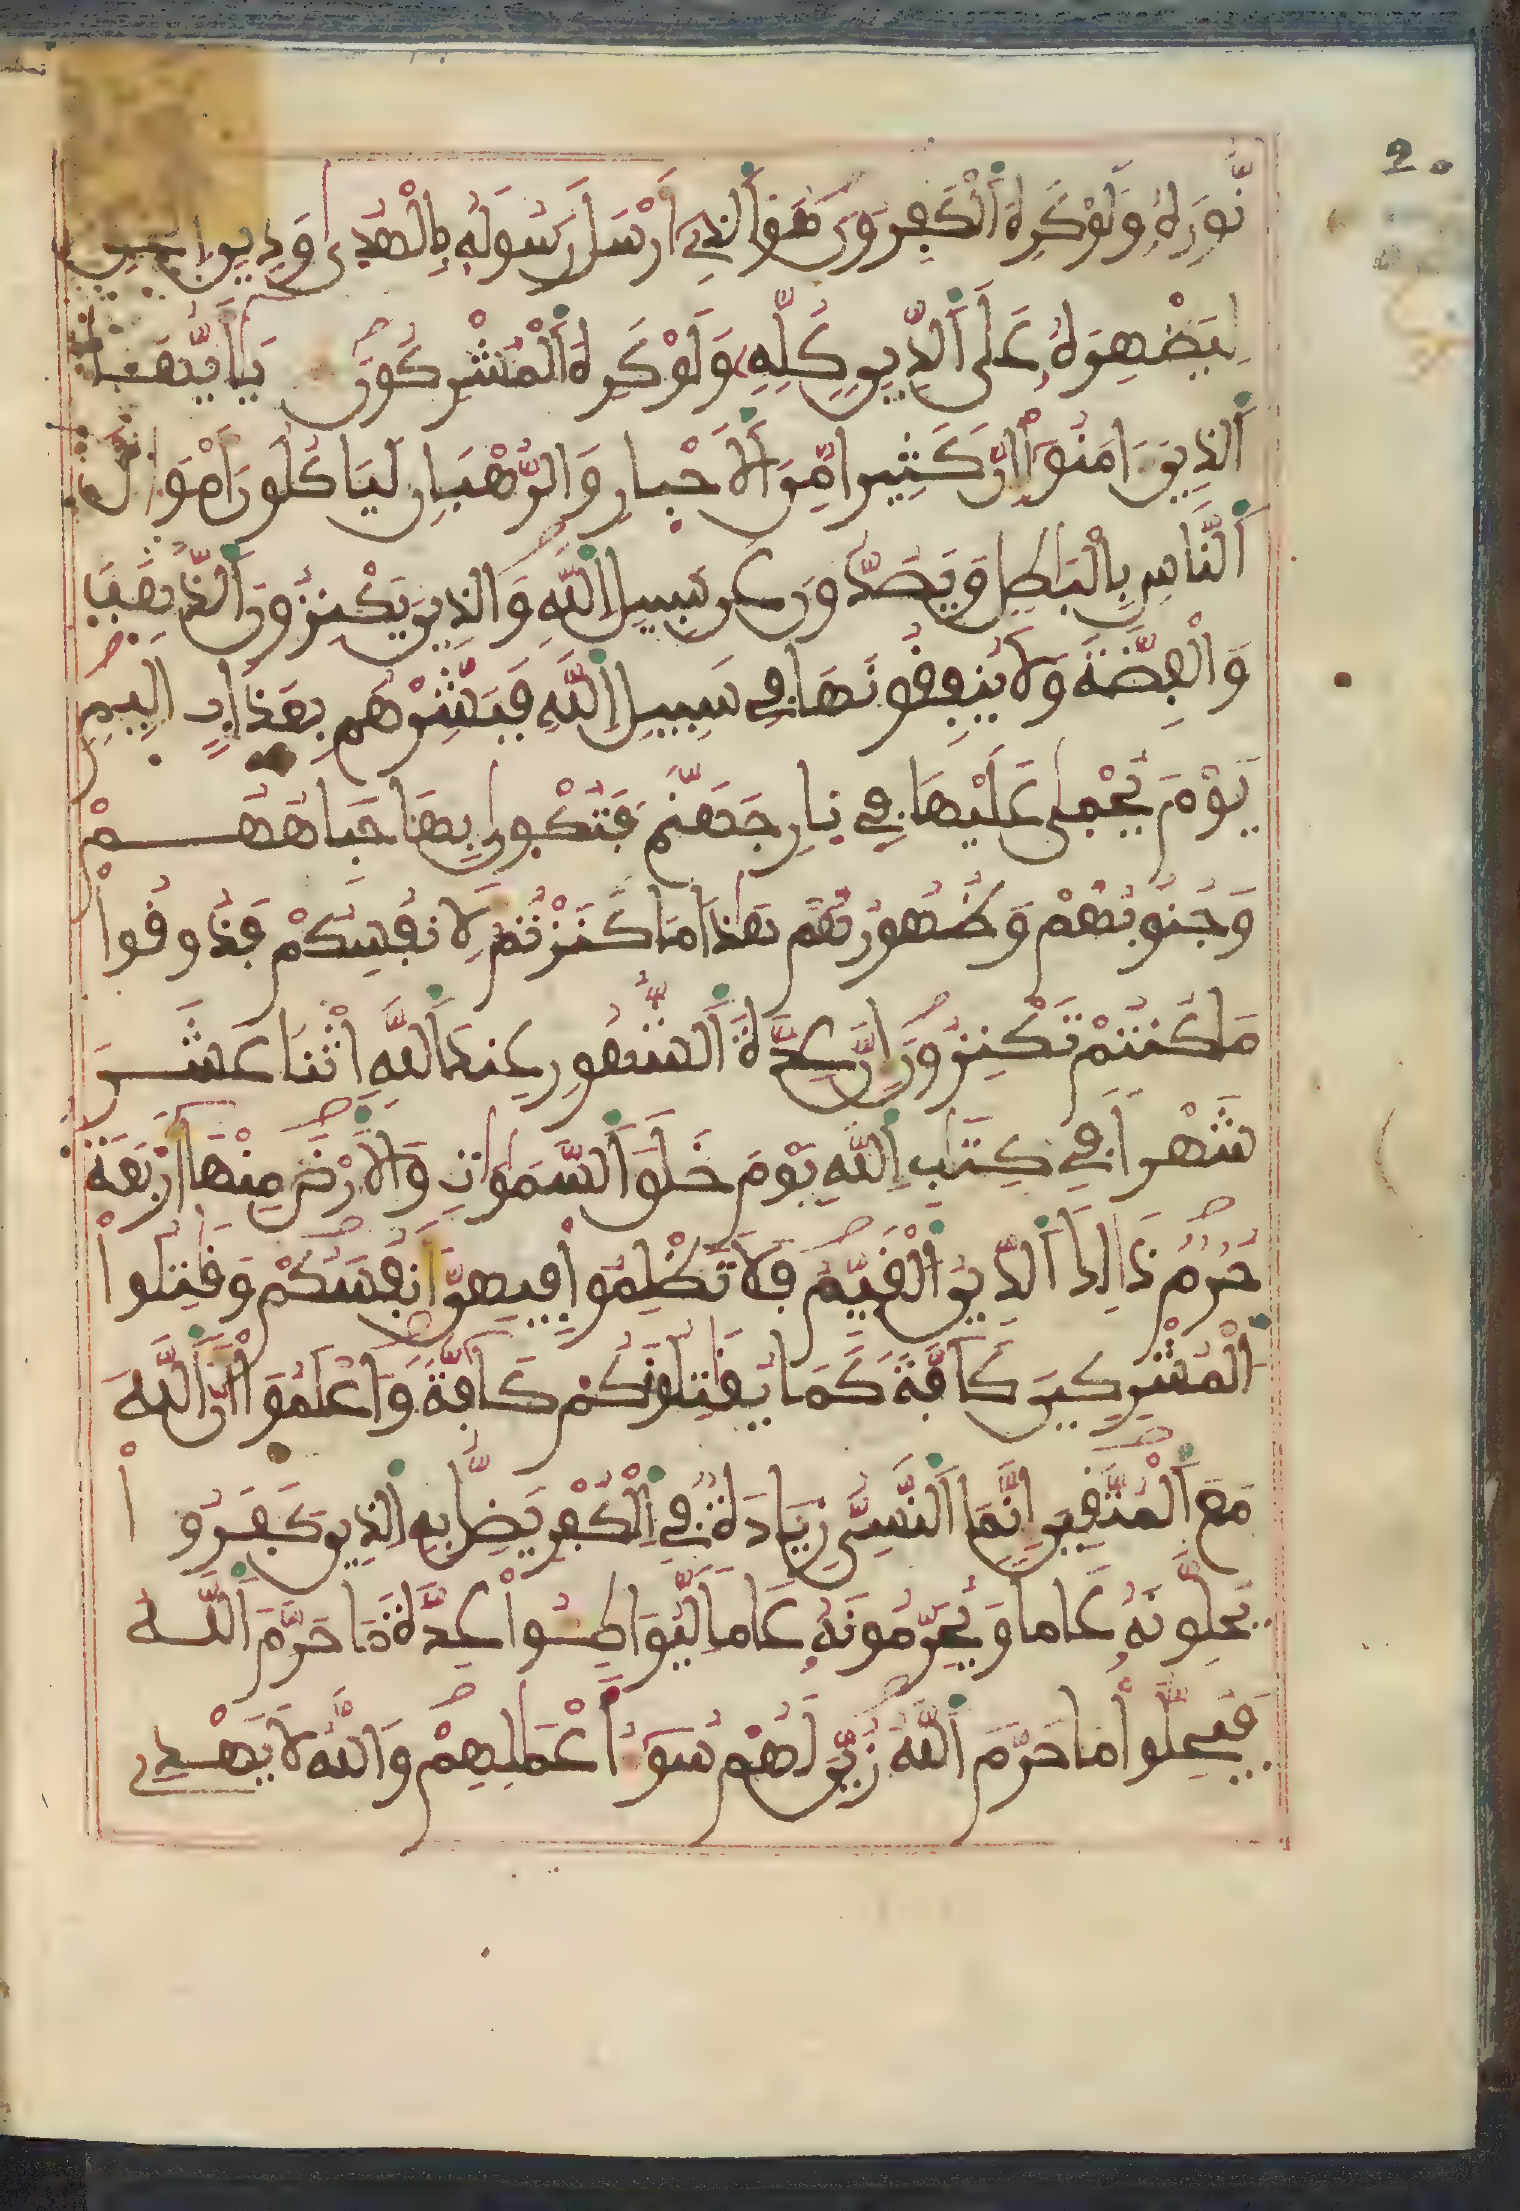 2.
نُّورَهُۥ وَلَوْ كَرِهَ ٱلْكَٰفِرُونَ هُوَ ٱلذِےٓ أَرْسَلَ رَسُولَهُۥ بِالْهُدَىٰ وَدِينِ
لِيُظْهِرَهُۥ عَلَى ٱلدِّينِ كُلِّهِۦ وَلَوْ كَرِهَ ٱلْمُشْرِكُونَ يَٰٓأَيُّهَا
ٱلذِينَ ءَامَنُوٓا۟ إِنَّ كَثِيرًا مِّنَ ٱلْأَحْبَارِ وَالرُّهْبَانِ لَيَاكُلُونَ أَمْوَٰلَ
ٱلنَّاسِ بِالْبَٰطِلِ وَيَصُدُّونَ عَن سَبِيلِ ٱللَّهِ وَالذِينَ يَكْنِزُونَ ٱلذَّهَبَ
وَالْفِضَّةَ وَلَا يُنفِقُونَهَا فِے سَبِيلِ ٱللَّهِ فَبَشِّرْهُم بِعَذَابٍ اَلِيمٍ
يَوْمَ يُحْمَىٰ عَلَيْهَا فِے نَارِ جَهَنَّمَ فَتُكْوَىٰ بِهَا جِبَاهُهُمْ
وَجُنُوبُهُمْ وَظُهُورُهُم هَٰذَا مَا كَنَزْتُمْ لِأَنفُسِكُمْ فَذُوقُوا۟
مَا كُنتُمْ تَكْنِزُونَ إِنَّ عِدَّةَ ٱلشُّهُورِ عِندَ ٱللَّهِ اثْنَا عَشَرَ
شَهْرًا فِے كِتَٰبِ ٱللَّهِ يَوْمَ خَلَقَ ٱلسَّمَٰوَٰتِ وَالْأَرْضَ مِنْهَآ أَرْبَعَةٌ
حُرُمٌ ذَٰلِكَ ٱلدِّينُ ٱلْقَيِّمُ فَلَا تَظْلِمُوا۟ فِيهِنَّ أَنفُسَكُمْ وَقَٰتِلُوا۟
ٱلْمُشْرِكِينَ كَآفَّةً كَمَا يُقَٰتِلُونَكُمْ كَآفَّةً وَاعْلَمُوٓا۟ أَنَّ ٱللَّهَ
مَعَ ٱلْمُتَّقِينَ إِنَّمَا ٱلنَّسِىُّ زِيَادَةٌ فِے ٱلْكُفْرِ يَضِلُّ بِهِ ٱلذِينَ كَفَرُوا۟
يُحِلُّونَهُۥ عَامًا وَيُحَرِّمُونَهُۥ عَامًا لِّيُوَاطِـُٔوا۟ عِدَّةَ مَا حَرَّمَ ٱللَّهُ
فَيُحِلُّوا۟ مَا حَرَّمَ ٱللَّهُ زُيِّنَ لَهُمْ سُوٓءُ اَعْمَٰلِهِمْ وَاللَّهُ لَا يَهْدِے